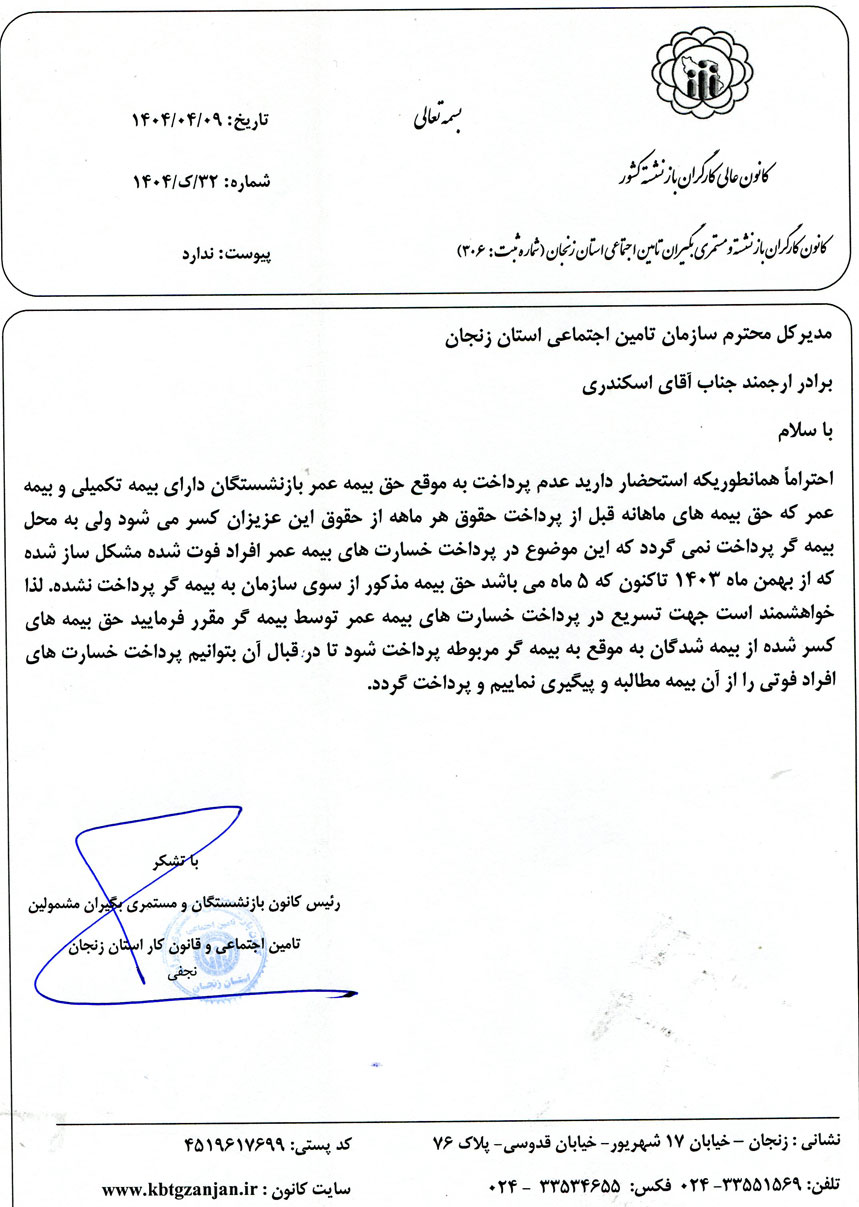 بسمه تعالی
تاریخ: ۱۴۰۴/۰۴/۰۹
کانون عالی کارگران بازنشسته کشور
شماره: ۳۲/ک/۱۴۰۴
کانون کارگران بازنشسته و مستمری بگیران تامین اجتماعی استان زنجان (شماره ثبت: ۳۰۶)
پیوست: ندارد
مدیرکل محترم سازمان تامین اجتماعی استان زنجان
برادر ارجمند جناب آقای اسکندری
با سلام
احتراماً همانطوریکه استحضار دارید عدم پرداخت به موقع حق بیمه عمر بازنشستگان دارای بیمه تکمیلی و بیمه
عمر که حق بیمه های ماهانه قبل از پرداخت حقوق هر ماهه از حقوق این عزیزان کسر می شود ولی به محل
بیمه گر پرداخت نمی گردد که این موضوع در پرداخت خسارت های بیمه عمر افراد فوت شده مشکل ساز شده
که از بهمن ماه ۱۴۰۳ تاکنون که ۵ ماه می باشد حق بیمه مذکور از سوی سازمان به بیمه گر پرداخت نشده. لذا
خواهشمند است جهت تسریع در پرداخت خسارت های بیمه عمر توسط بیمه گر مقرر فرمایید حق بیمه های
کسر شده از بیمه شدگان به موقع به بیمه گر مربوطه پرداخت شود تا در قبال آن بتوانیم پرداخت خسارت های
افراد فوتی را از آن بیمه مطالبه و پیگیری نماییم و پرداخت گردد.
با تشکر
رئیس کانون بازنشستگان و مستمری بگیران مشمولین
تامین اجتماعی و قانون کار استان زنجان
نجفی
استان زنجان
نشانی : زنجان – خیابان ۱۷ شهریور- خیابان قدوسی- پلاک ۷۶
کد پستی: ۴۵۱۹۶۱۷۶۹۹
تلفن: ۳۳۵۵۱۵۶۹- ۰۲۴ فکس: ۳۳۵۳۴۶۵۵ - ۰۲۴
سایت کانون : www.kbtgzanjan.ir